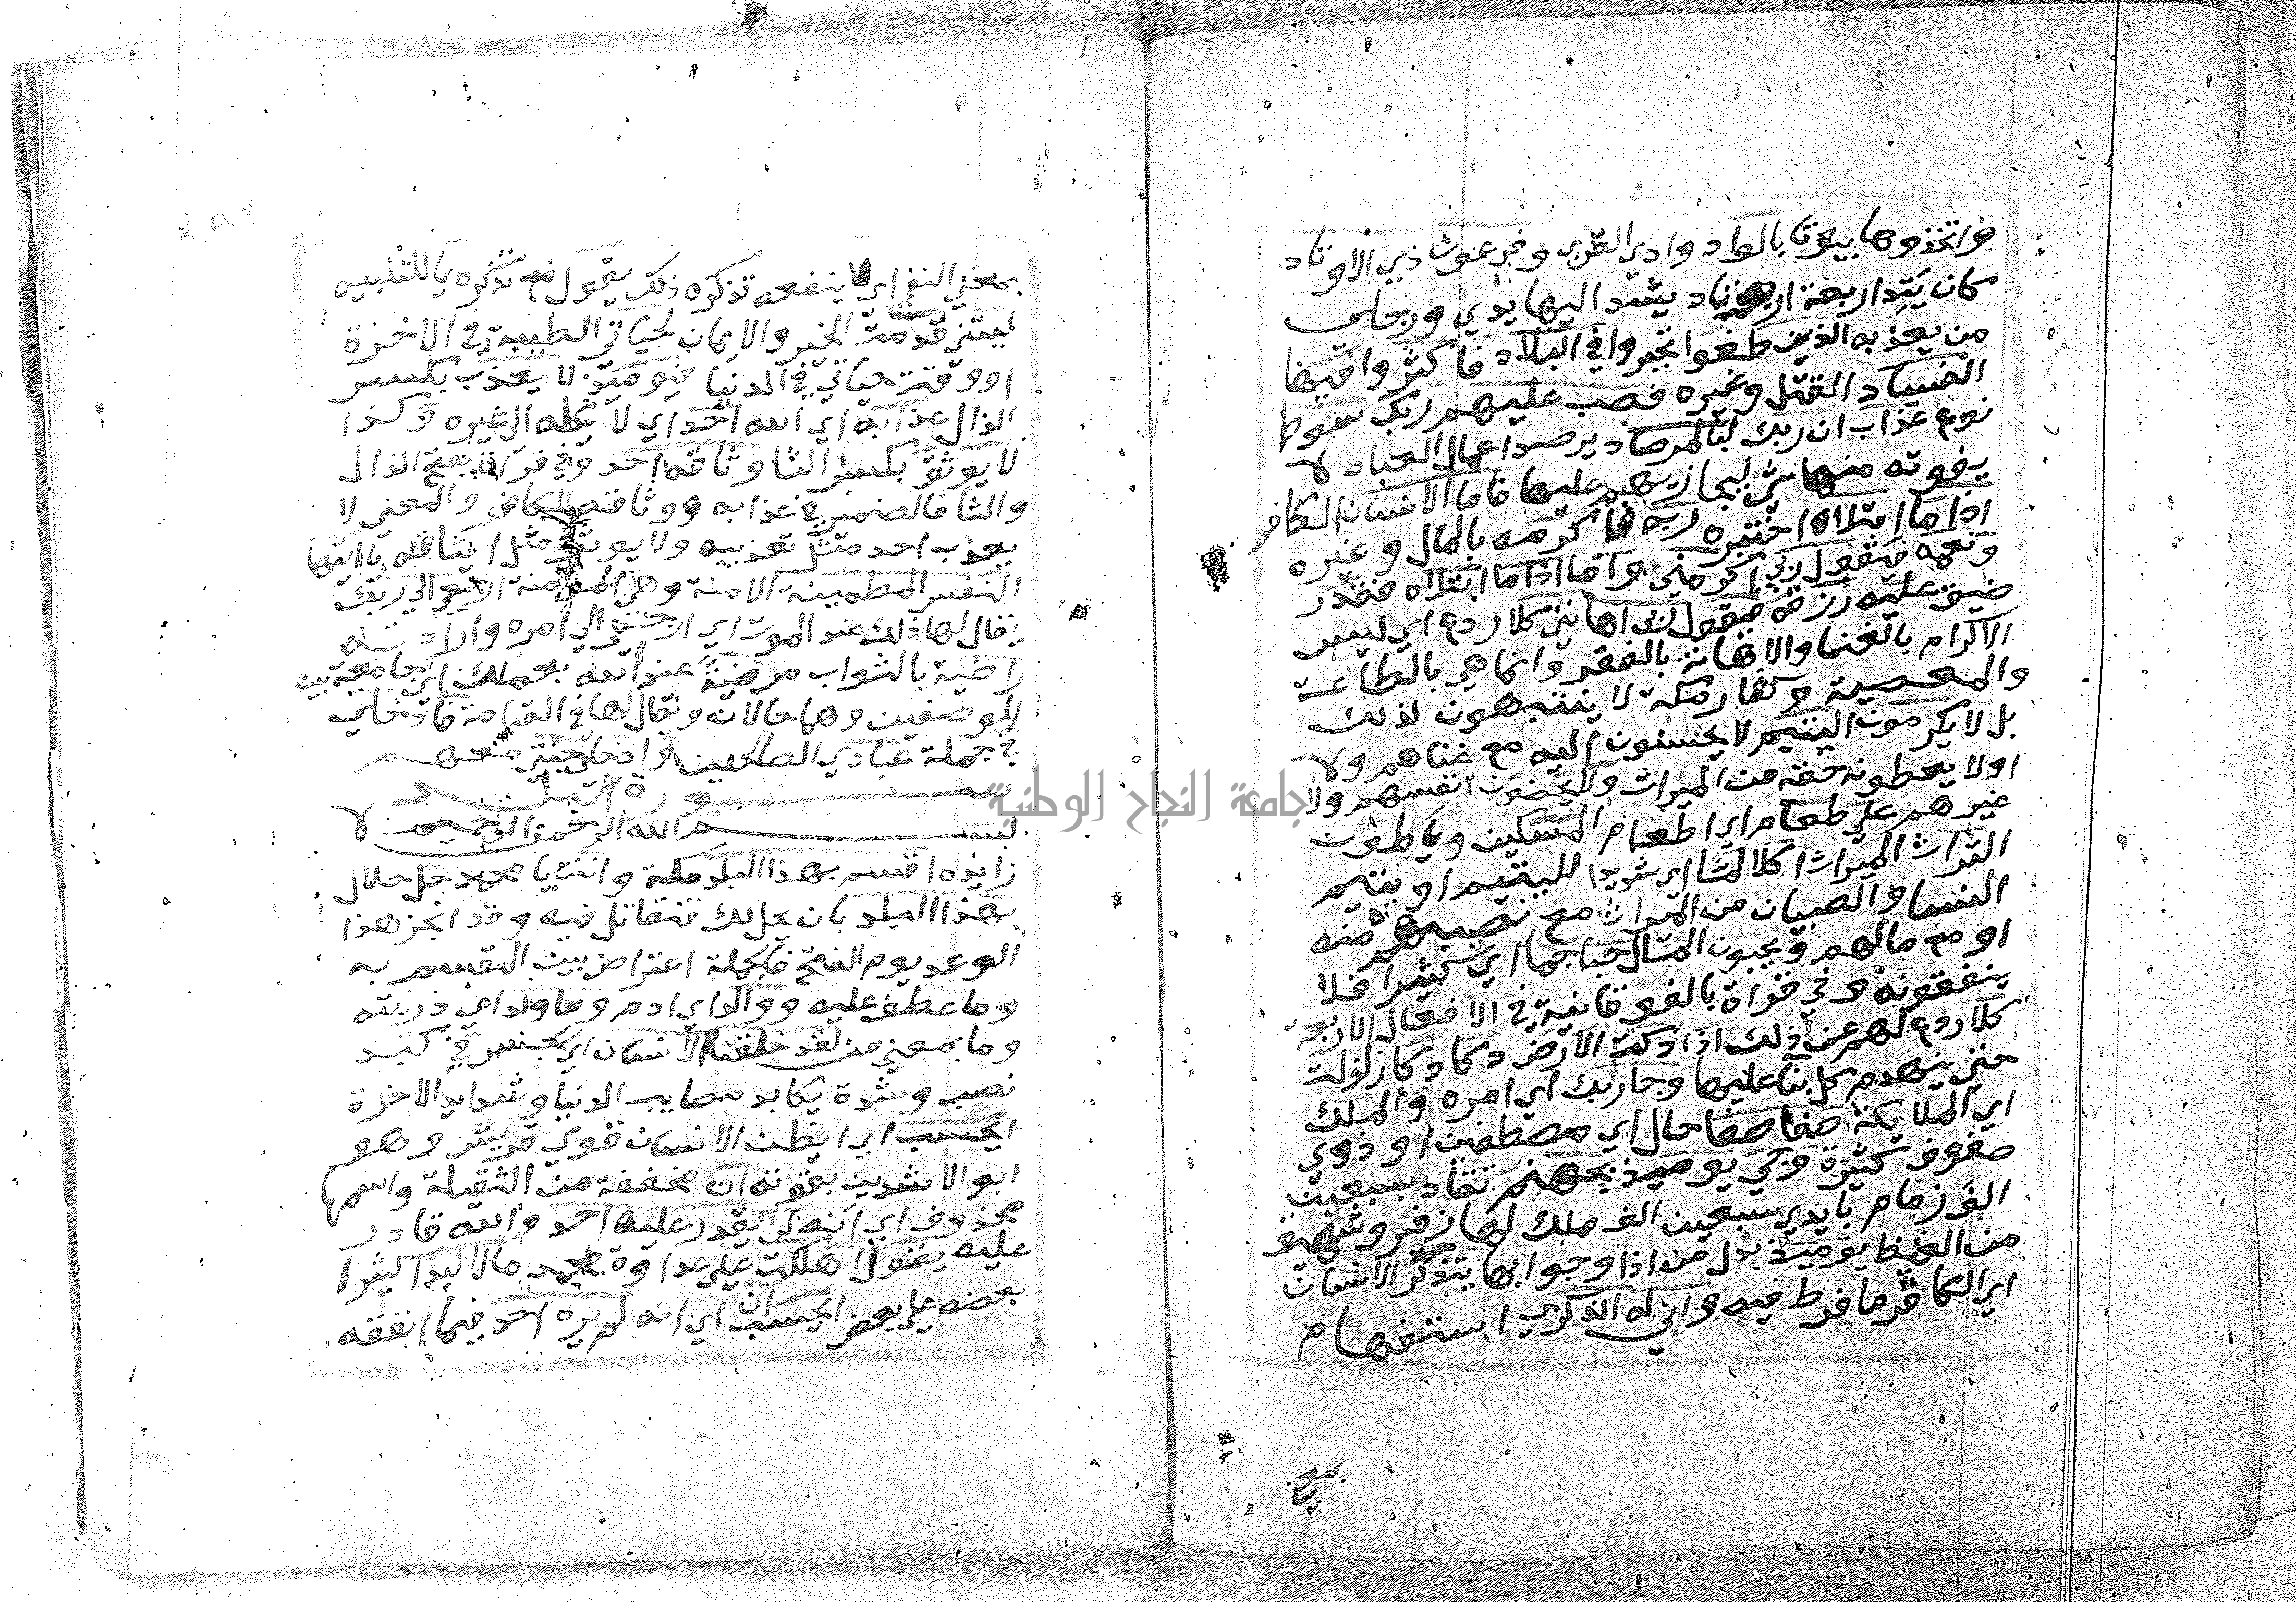 واتخذوها بيوتا بالواد وادي القري وفرعون ذي الاوتاد
كان يتد اربعة اوتاد يشد اليها يدي ورجلي
من يعذبه الذين طغوا تجبروا في البلاد فاكثروا فيها
الفساد القتل وغيره فصب عليهم ربك سوط
نوع عذاب ان ربك لبالمرصاد يرصد اعمال العباد لا
يفوته منها شي ليجازيهم عليها فاما الانسان الكافر
اذا ما ابتلاه اختبره ربه فاكرمه بالمال وغيره
ونعمه فيقول ربي اكرمني واما اذا ما ابتلاه فقدر
ضيق عليه رزقه فيقول ربي اهانني كلا ردع اي ليس
الاكرام بالغنا والاهانة بالفقر وانما هي بالطاعة
والمعصية وكفار مكة لا يتنبهون لذلك
بل لا يكرمون اليتيم لا يحسنون اليه مع غناهم ولا
او لا يعطونه حقه من الميراث ولا يحضون انفسهم ولا
غيرهم علي طعام اي اطعام المسكين وياكلون
التراث الميراث اكلا لما اي شديدا لليتيم او يتيم
النسا والصبيان من الميراث مع نصيبهم منه
او مع مالهم ويحبون المال حبا جما اي كثيرا فلا
ينفقونه وفي قراة بالفوقانية في الافعال الاربعة
كلا ردع لهم عن ذلك اذا دكت الارض دكا دكا زلزلت
حتي ينهدم كل بنا عليها وجا ربك اي امره والملك
اي الملايكة صفا صفا حال اي مصطفين او ذوي
صفوف كثيرة وجي يوميذ بجهنم تقاد بسبعين
الف زمام بايدي سبعين الف ملك لها زفير وشهيق
من الغيظ يوميذ بدل من اذا وجوابها يتذكر الانسان
اي الكافر ما فرط فيه واني له الذكري استفهام
بمعني
بمعني النفي اي لا ينفعه تذكره ذلك يقول مع تذكره يا للتنبيه
ليتني قدمت الخير والايمان لحياتي الطيبة في الاخرة
او وقت حياتي في الدنيا فيوميذ لا يعذب بكسر
الذال عذابه اي الله احد اي لا يكله الي غيره وكذا
لا يوثق بكسر الثا وثاقه احد وفي قراة بفتح الذال
والثا فالضمير في عذابه ووثاقه للكافر والمعني لا
يعذب احد مثل تعذيبه ولا يوثق مثل ايثاقه يا ايتها
النفس المطمينة الامنة وهي المومنة ارجعي الي ربك
يقال لها ذلك عند الموت اي ارجعي الي امره وارادته
راضية بالثواب مرضية عند الله بعملك اي جامعة بين
الوصفين وهما حالان ويقال لها في القيامة فادخلي
في جملة عبادي الصالحين وادخلي جنتي معهم
سورة البلد
بسم الله الرحمن الرحيم لا
زايدة اقسم بهذا البلد مكة وانت يا محمد حل حلال
بهذا البلد بان يحل لك فتقاتل فيه وقد انجز هذا
الوعد يوم الفتح فالجملة اعتراض بين المقسم به
وما عطف عليه ووالد اي ادم وما ولد اي ذريته
وما بمعني من لقد خلقنا الانسان اي الجنس في كبد
نصب وشدة يكابد مصايب الدنيا وشدايد الاخرة
ايحسب اي ايظن الانسان قوي قريش وهو
ابو الاشدين بقوته ان مخففة من الثقيلة واسمها
محذوف اي انه لن يقدر عليه احد والله قادر
عليه يقول اهلكت علي عداوة محمد مالا لبدا كثيرا
بعضه علي بعض ايحسب ان اي انه لم يره احد فيما انفقه
جامعة النجاح الوطنية